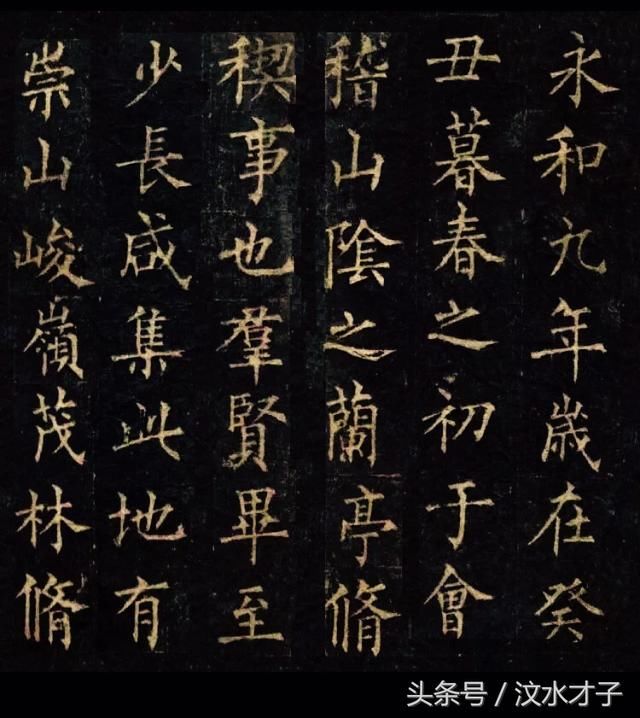 永和九年歲在癸
丑暮春之初于會
稽山陰之蘭亭脩
稧事也羣賢畢至
少長咸集此地有
崇山峻嶺茂林脩
头条号 / 汶水才子